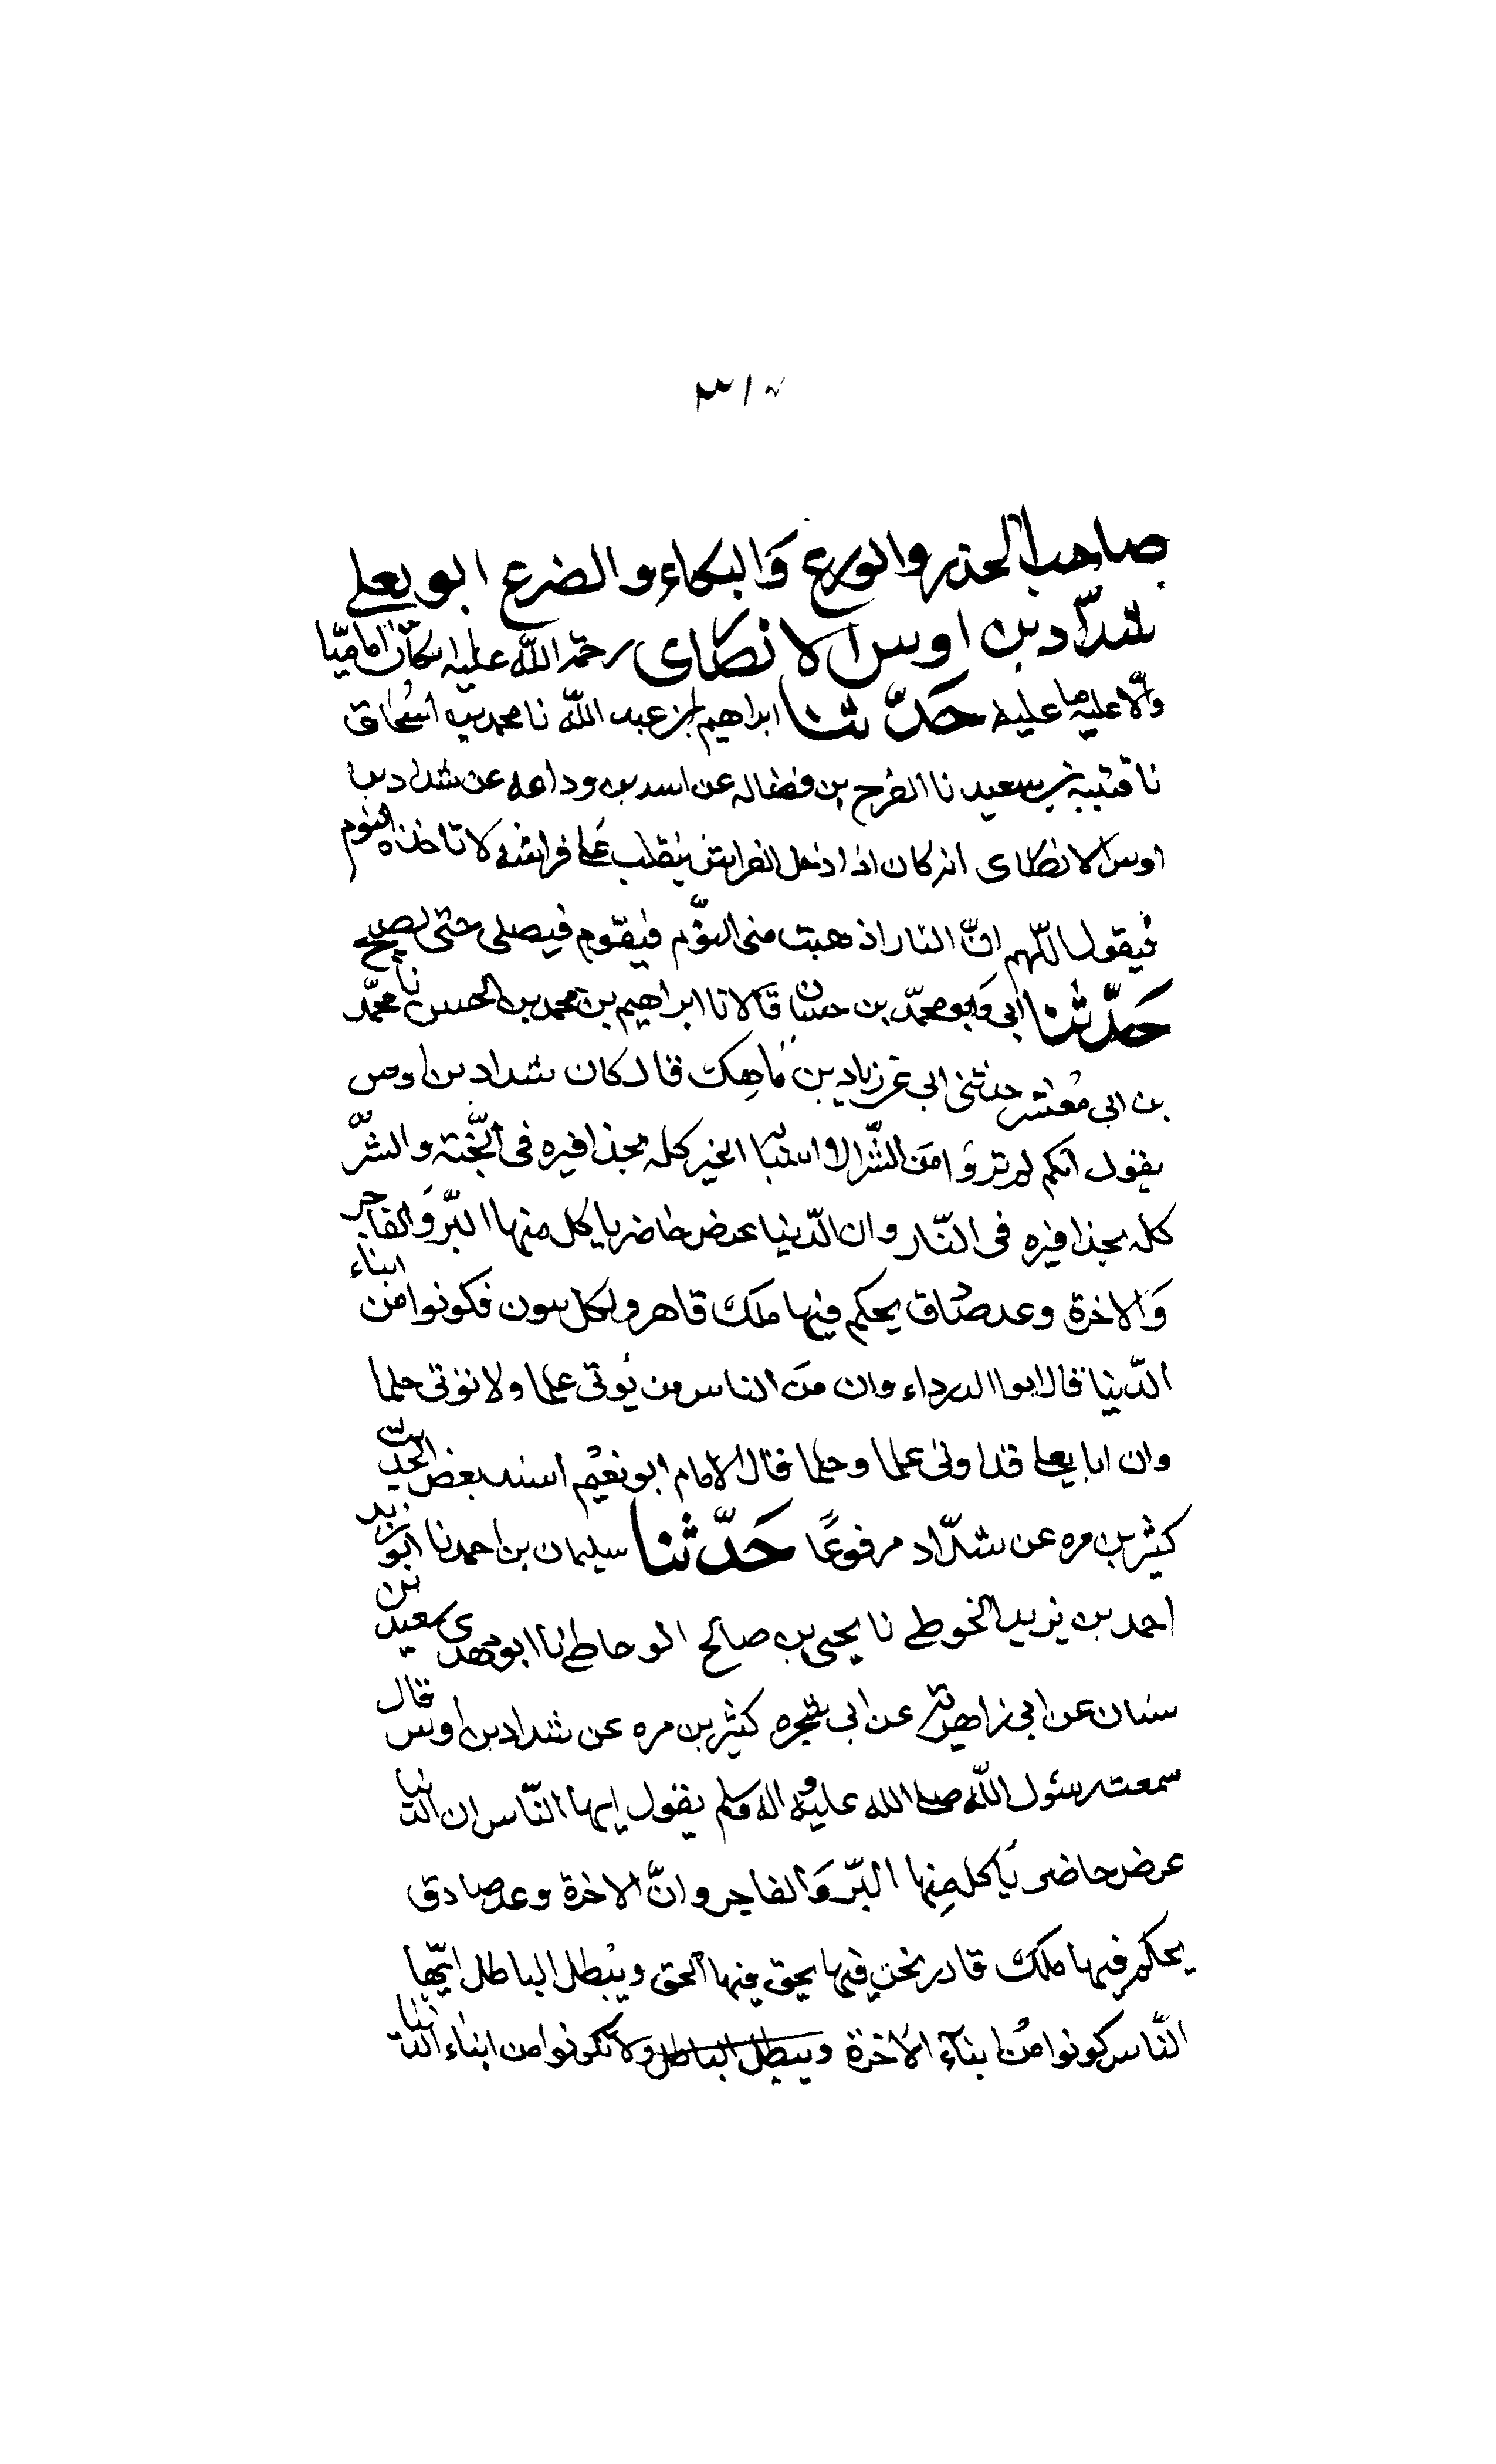 صاحب الحذر والورع وَالبكاء والضرع ابو يعلى
شدّاد بن اوس الانصاری رحمة الله عليه
والّا عليه ما عليه حَدّثنا ابراهيم بن عبد اللّه نا محمد بن اسحاق
نا قتيبة بن سعيد نا الفرج بن فضاله عن اسد بن وداعه عن شداد بن
اوس الانصاری انه كان اذا دخل الفراش يتقلب عَلى فراشه لا تاخذه النوم
فيقول اللّهم انّ النار اذهبت منى النّوم فيقوم فيصلى حتى يصبح
حَدّثنا ابى وَابو محمّد بن حسان قالا نا ابراهيم بن محمد بن الحسن نا محمّد
بن ابى معشر حدثنى ابى عن زياد بن مَاهك قال كان شداد بن اوس
يقول انكم لم تروا من الشّر الا اسبابا الخير كله بحذافيره فى الجّنة والشّر
كله بحذافيره فى النّار وان الدّنيا عرض حاضر ياكل منها البّر وَالفاجر
وَالاخرة وعد صادق يحكم فيها ملك قاهر ولكل بنون فكونوا من ابناء
الدّنيا قال ابوا الدرداء وان منَ الناس من يُوتى علما ولا يوتى حلما
وان ابا يعلى قد اوتى علما وحلما قال الامام ابو نعيم اسند بعض الحديث
كثير بن مره عن شدّاد مرفوعًا حَدّثنا سليمان بن احمد نا ابو زيد
احمد بن يزيد الخوطى نا يحيى بن صالح الوحاطى نا ابو مهدى سعيد بن
سنان عن ابى زاهرية عن ابى شجره كثير بن مره عن شداد بن اوس قال
سمعت رسُول اللّه صلى الله عليه واله وسلم يقول ايها النّاس ان الدنيا
عرض حاضر يَاكل مِنها البّر وَالفاجر وانّ الاخرة وعد صادق
يحكم فيها ملك قادر نحن فيها يحق فيها الحق ويُبطل الباطل ايّها
النّاس كونوا من ابنآء الاخرة ويبطل الباطل ولا تكونوا من ابناء الدنيا